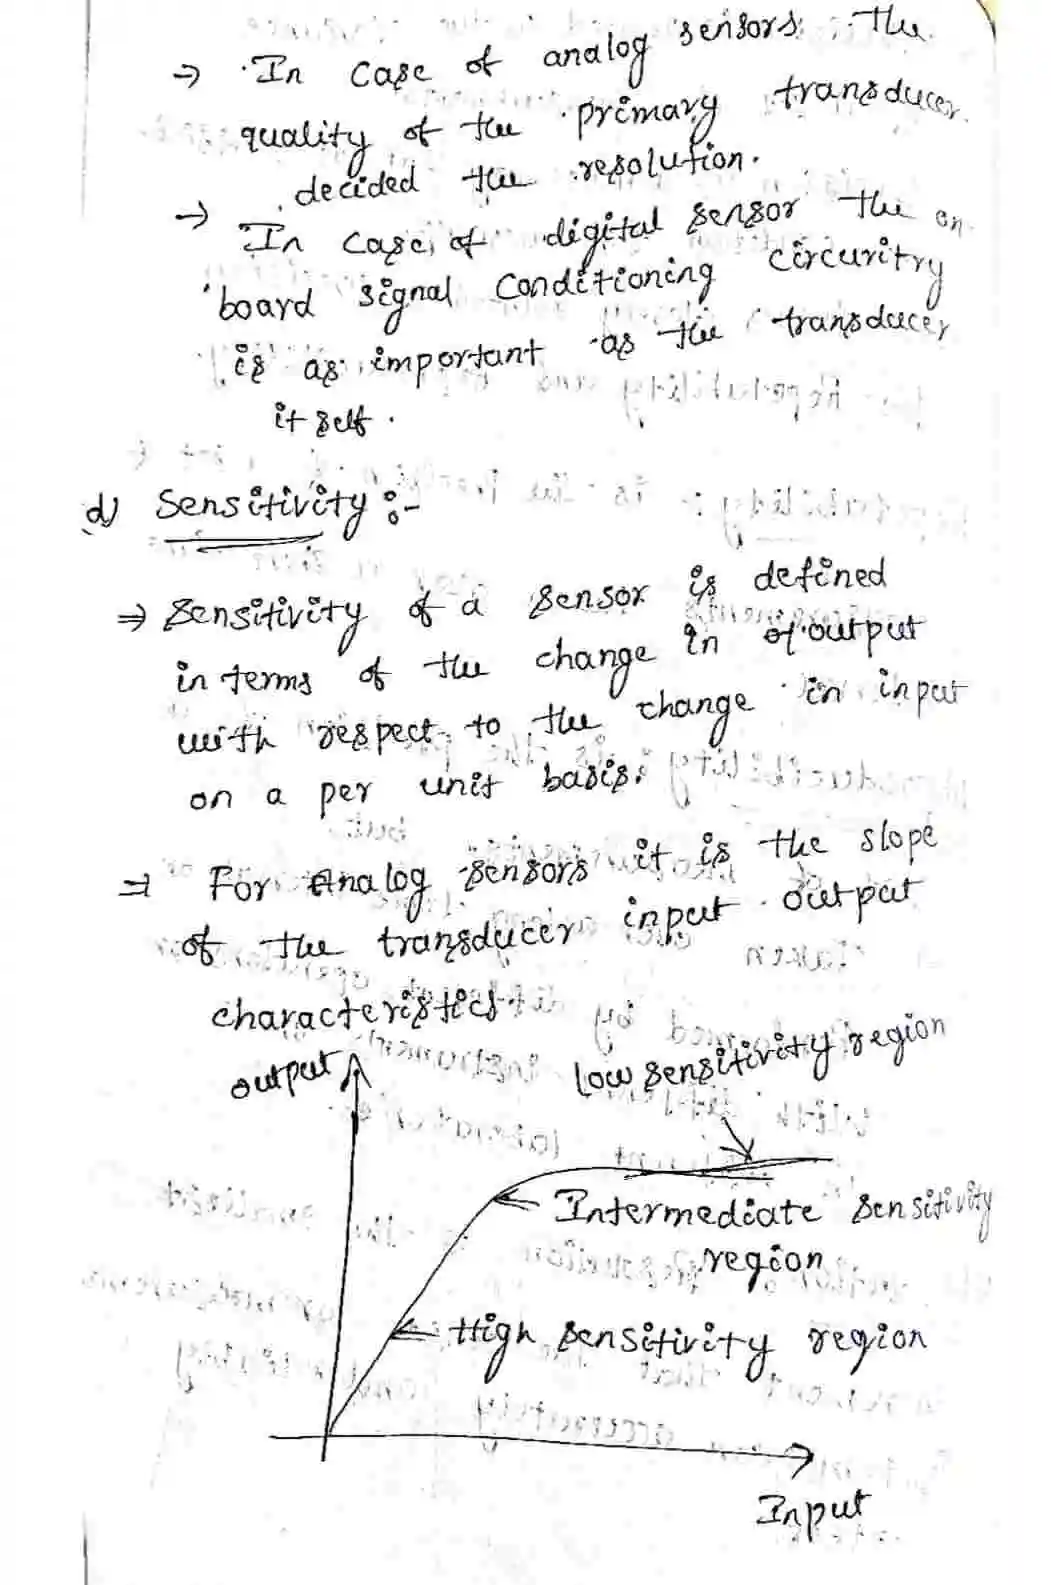 ⇒ In case of analog sensors the
quality of the primary transducer
decided the resolution.
→ In case of digital sensor the on
board signal conditioning circuritry
is as important as the transducer
itself.
d) Sensitivity :-
⇒ Sensitivity of a sensor is defined
in terms of the change in of output
with respect to the change in input
on a per unit basis.
⇒ For Analog sensors it is the slope
of the transducer input output
characteristics.
output
low sensitivity region
Intermediate sensitivity
region
High sensitivity region
Input